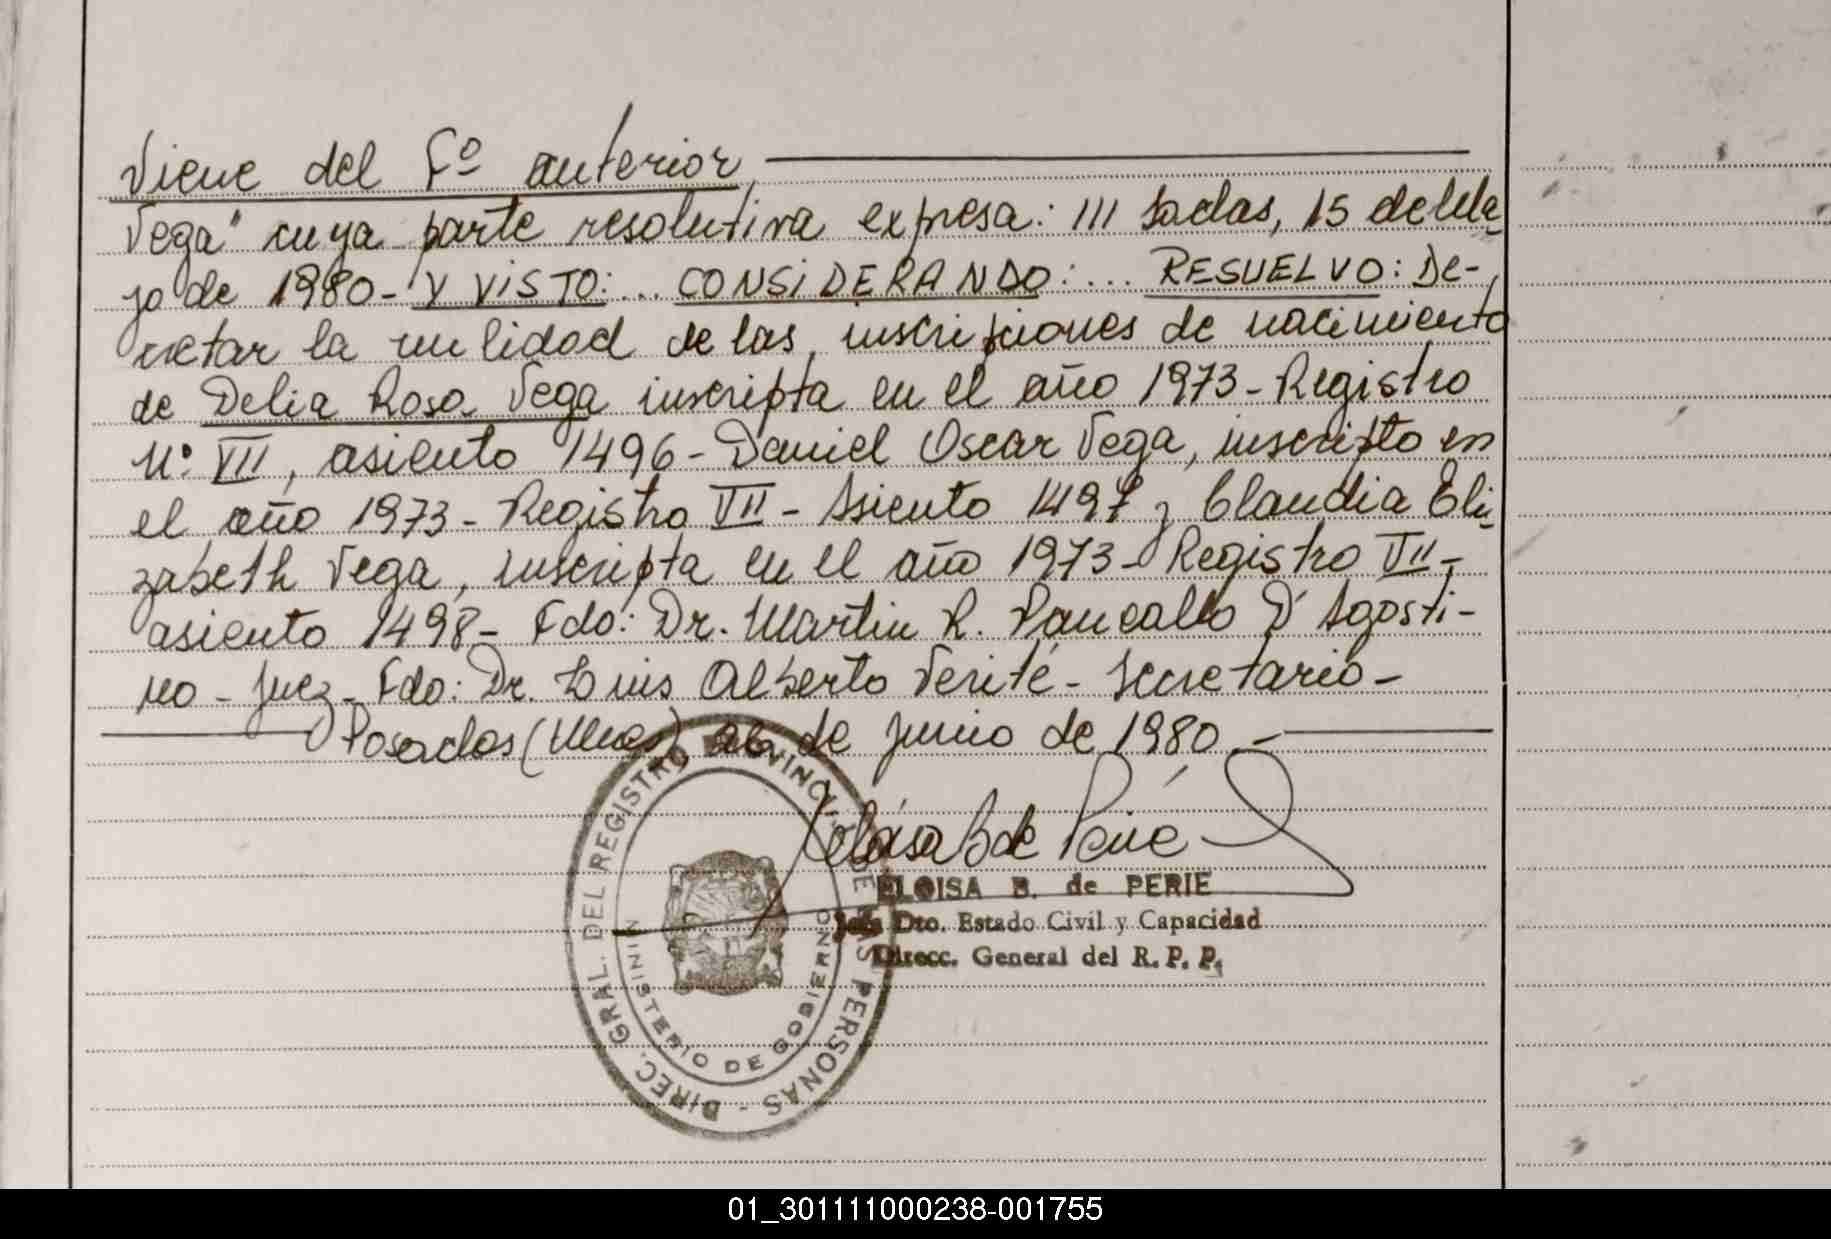 Viene del Fº anterior
Vega" cuya parte resolutiva expresa: /// sadas, 15 de Ma-
yo de 1980 - Y VISTO:... CONSIDERANDO:... RESUELVO: De-
cretar la nulidad de las inscripciones de nacimiento
de Delia Rosa Vega inscripta en el año 1973 - Registro
Nº VII, asiento 1496 - Daniel Oscar Vega, inscripto en
el año 1973 - Registro VII - Asiento 1497 y Claudia Eli-
zabeth Vega, inscripta en el año 1973 - Registro VII -
asiento 1498 - Fdo: Dr. Martin R. D'Agosti-
no - Juez - Fdo: Dr. Luis Alberto Verité - Secretario -
Posadas (Mnes) 26 de junio de 1980 -
Eloisa B de Perié
ELOISA B. de PERIE
Jefa Dto. Estado Civil y Capacidad
Direcc. General del R. P. P.
DIREC. GRAL. DEL REGISTRO PROVINCIAL DE LAS PERSONAS -
MINISTERIO DE GOBIERNO
01_301111000238-001755